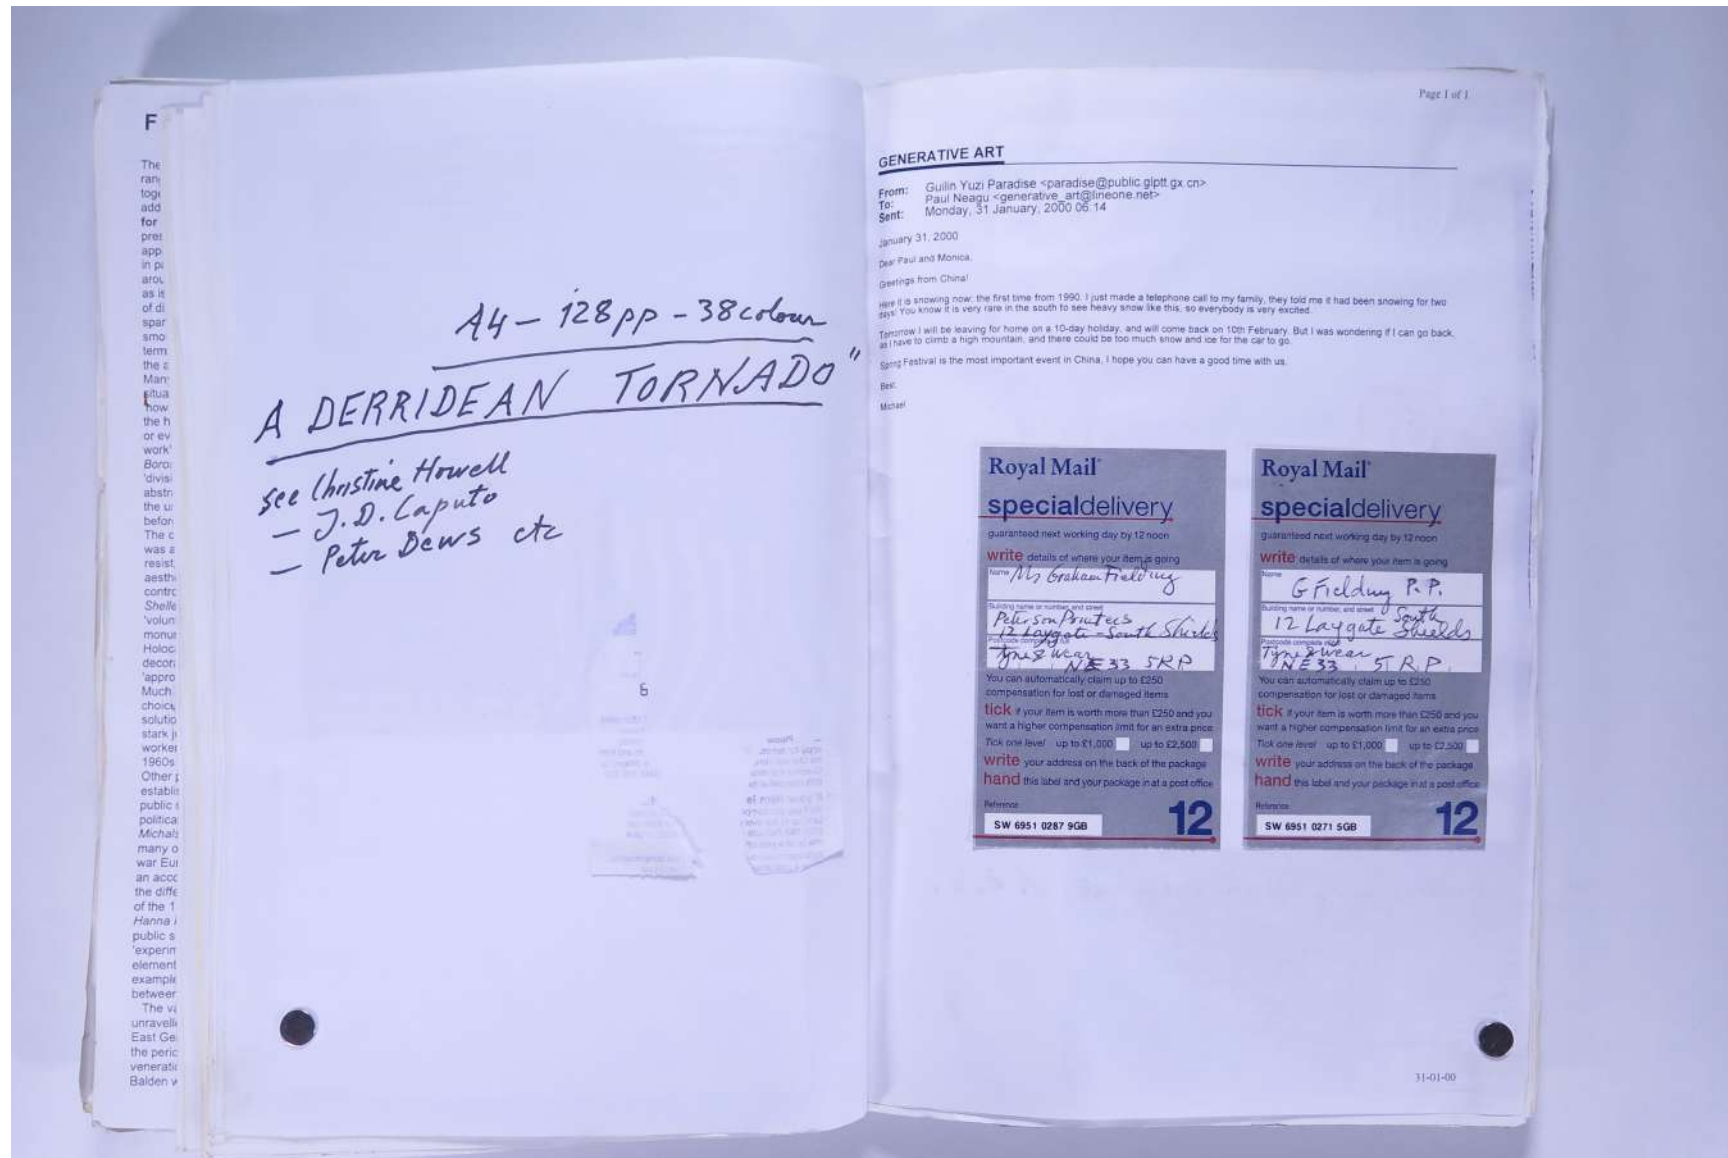 F
The
ran
toge
add
for
pres
app
in pa
arou
as is
of di
spar
smo
term
the a
Many
situa
how
the h
or ev
work'
Boro
'divisi
abstra
the ur
before
The c
was a
resist
aesth
contro
Shelle
'volun
monur
Holoc
decor
'appro
Much
choice
solutio
stark j
worker
1960s
Other p
establis
public s
politica
Michals
many o
war Eur
an acco
the diffe
of the 1
Hanna
public s
'experim
element
example
between
The va
unravelli
East Ge
the perio
veneratio
Balden w
A4 – 128pp – 38 colour
A DERRIDEAN TORNADO"
see Christine Howell
– J.D. Caputo
– Peter Dews etc
6
Page 1 of 1
GENERATIVE ART
From: Guilin Yuzi Paradise <paradise@public.glptt.gx.cn>
To: Paul Neagu <generative_art@lineone.net>
Sent: Monday, 31 January, 2000 06:14
January 31, 2000
Dear Paul and Monica,
Greetings from China!
Here it is snowing now: the first time from 1990. I just made a telephone call to my family, they told me it had been snowing for two
days! You know it is very rare in the south to see heavy snow like this, so everybody is very excited.
Tomorrow I will be leaving for home on a 10-day holiday, and will come back on 10th February. But I was wondering if I can go back,
as I have to climb a high mountain, and there could be too much snow and ice for the car to go.
Spring Festival is the most important event in China, I hope you can have a good time with us.
Best,
Michael
Royal Mail
specialdelivery
guaranteed next working day by 12 noon
write details of where your item is going
Name Ms Graham Fielding
Building name or number, and street
Peterson Printers
12 Laygate – South Shields
Tyne & Wear
NE33 5RP
You can automatically claim up to £250
compensation for lost or damaged items
tick if your item is worth more than £250 and you
want a higher compensation limit for an extra price
Tick one level up to £1,000 up to £2,500
write your address on the back of the package
hand this label and your package in at a post office
Reference
12
SW 6951 0287 9GB
Royal Mail
specialdelivery
guaranteed next working day by 12 noon
write details of where your item is going
Name
G Fielding P.P.
Building name or number, and street
12 Laygate South Shields
Tyne & Wear
NE33 5RP.
You can automatically claim up to £250
compensation for lost or damaged items
tick if your item is worth more than £250 and you
want a higher compensation limit for an extra price
Tick one level up to £1,000 up to £2,500
write your address on the back of the package
hand this label and your package in at a post office
Reference
12
SW 6951 0271 5GB
31-01-00